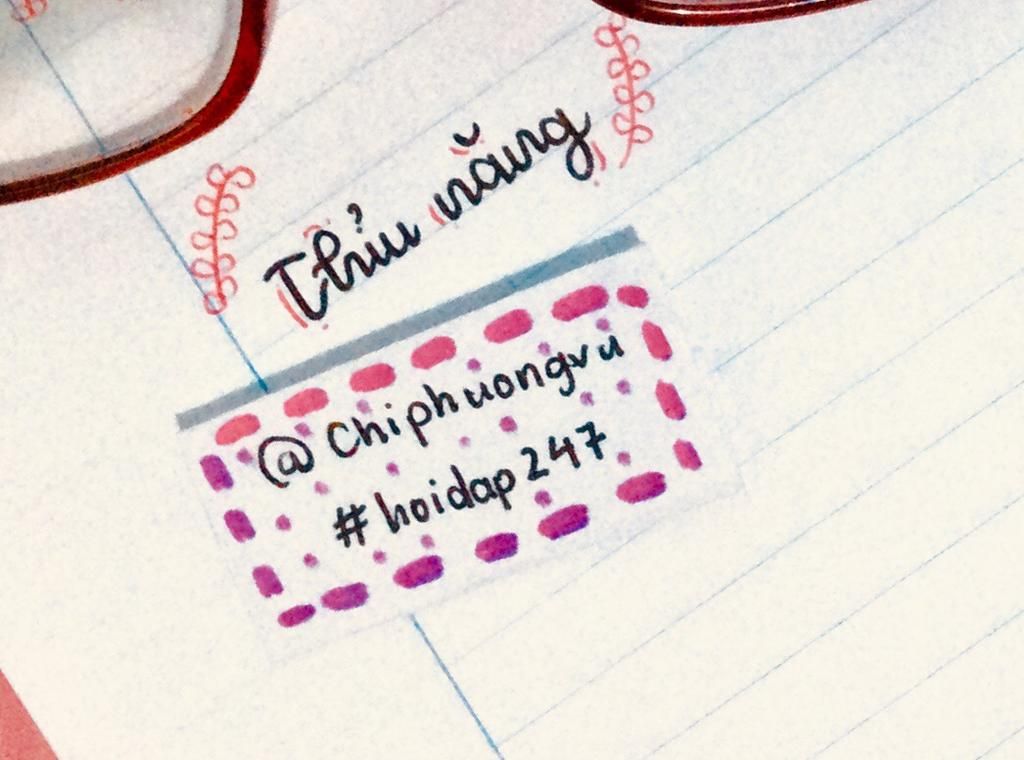 Thỉu năng
@Chiphuongvu
#hoidap247